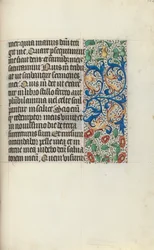 mei quia manus dni teti
git me Quare persequimi
me sicut deus et carnibus
saturamini Quis michi tri
at ut scribantur sermones
mei Quis michi det ut exarent
ur in libro stillo ferreo aut
plumbi lamina vel celte scul
pantur in silice Scio
q redemptor meus vivit et
in novissimo die de terra
surrecturus sum Et rursum
circumdabor pelle mea et in
carne mea videbo deu salva
torem meu Quem visurus